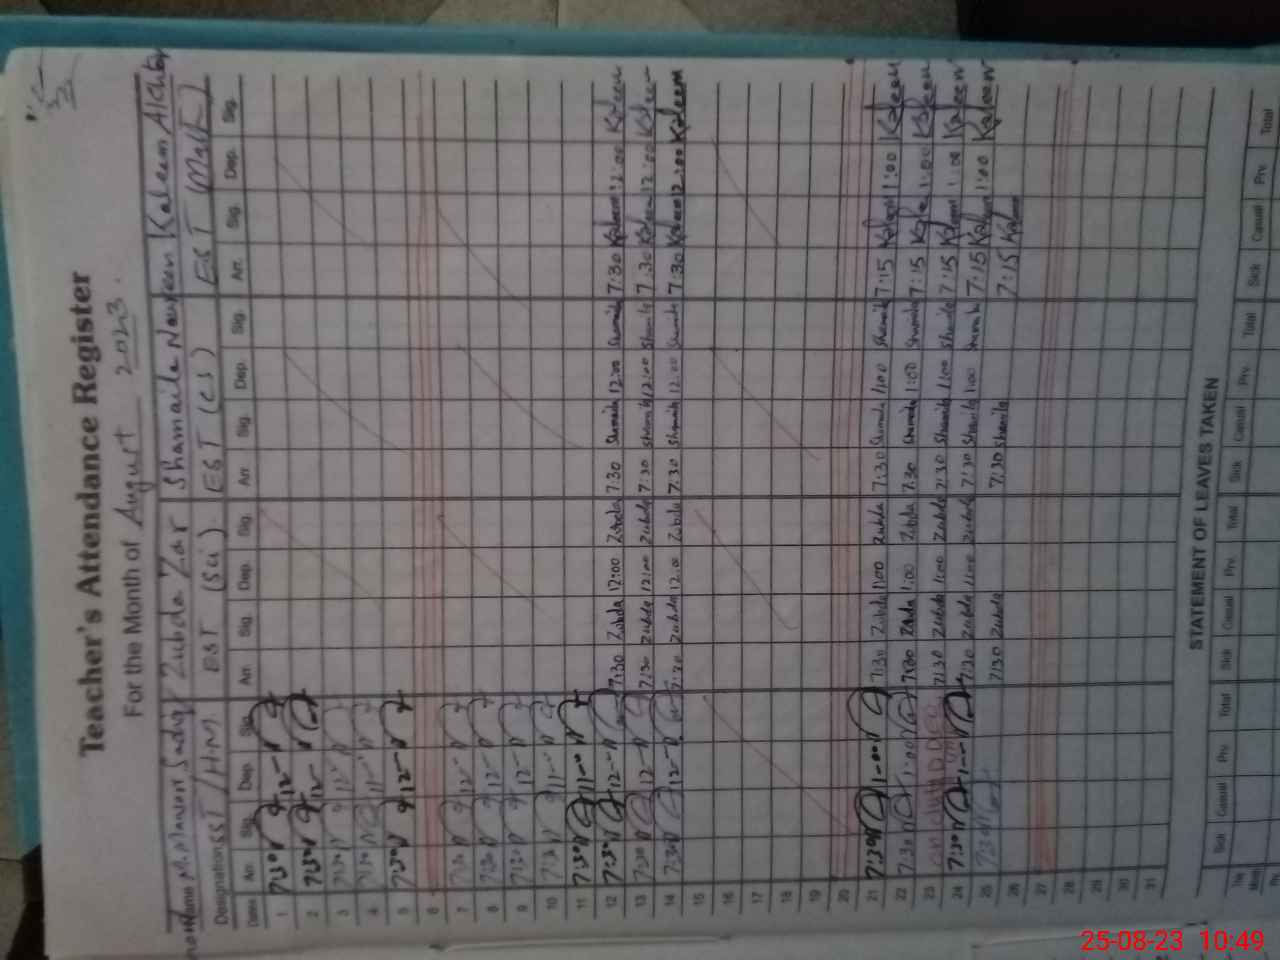 Teacher's Attendance Register
For the Month of August 2023.
Name M. Sadiq Zubda Zar Shamaila Nawreen Kaleem Akhtar
Designation SST / H.M. EST (Sci) EST (CS) EST (Math)
Dates Arr. Sig. Dep. Sig. Arr. Sig. Dep. Sig. Arr. Sig. Dep. Sig. Arr. Sig. Dep. Sig.
1 7:30 12-
2 7:30 12-
3 7:30 12-
4 7:30 11-
5 7:30 12-
6
7 7:30 12-
8 7:30 12-
9 7:30 12-
10 7:30 11-
11 7:30 11-
12 7:30 12- 7:30 Zubda 12:00 Zubda 7:30 Shamaila 12:00 Shamaila 7:30 Kaleem 12:00 Kaleem
13 7:30 12- 7:30 Zubda 12:00 Zubda 7:30 Shamaila 12:00 Shamaila 7:30 Kaleem 12:00 Kaleem
14 7:30 12- 7:30 Zubda 12:00 Zubda 7:30 Shamaila 12:00 Shamaila 7:30 Kaleem 12:00 Kaleem
15
16
17
18
19
20
21 7:30 1-00 7:30 Zubda 1:00 Zubda 7:30 Shamaila 1:00 Shamaila 7:15 Kaleem 1:00 Kaleem
22 7:30 1:00 7:30 Zubda 1:00 Zubda 7:30 Shamaila 1:00 Shamaila 7:15 Kaleem 1:00 Kaleem
23 on duty 7:30 Zubda 1:00 Zubda 7:30 Shamaila 1:00 Shamaila 7:15 Kaleem 1:00 Kaleem
24 7:30 1-- 7:30 Zubda 1:00 Zubda 7:30 Shamaila 1:00 Shamaila 7:15 Kaleem 1:00 Kaleem
25 7:30 7:30 Zubda 7:30 Shamaila 7:15 Kaleem
26
27
28
29
30
31
STATEMENT OF LEAVES TAKEN
Sick Casual Prv. Total Sick Casual Prv. Total Sick Casual Prv. Total Sick Casual Prv. Total
25-08-23 10:49